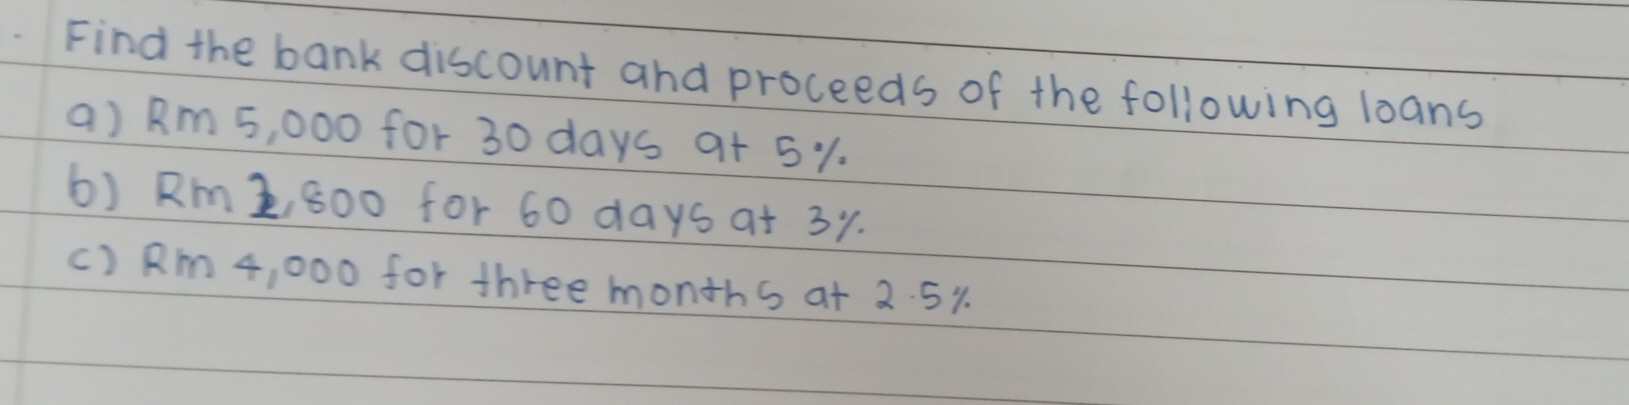 Find the bank discount and proceeds of the following loans
a) Rm 5,000 for 30 days at 5%.
b) Rm 2,800 for 60 days at 3%.
c) Rm 4,000 for three months at 2.5%.